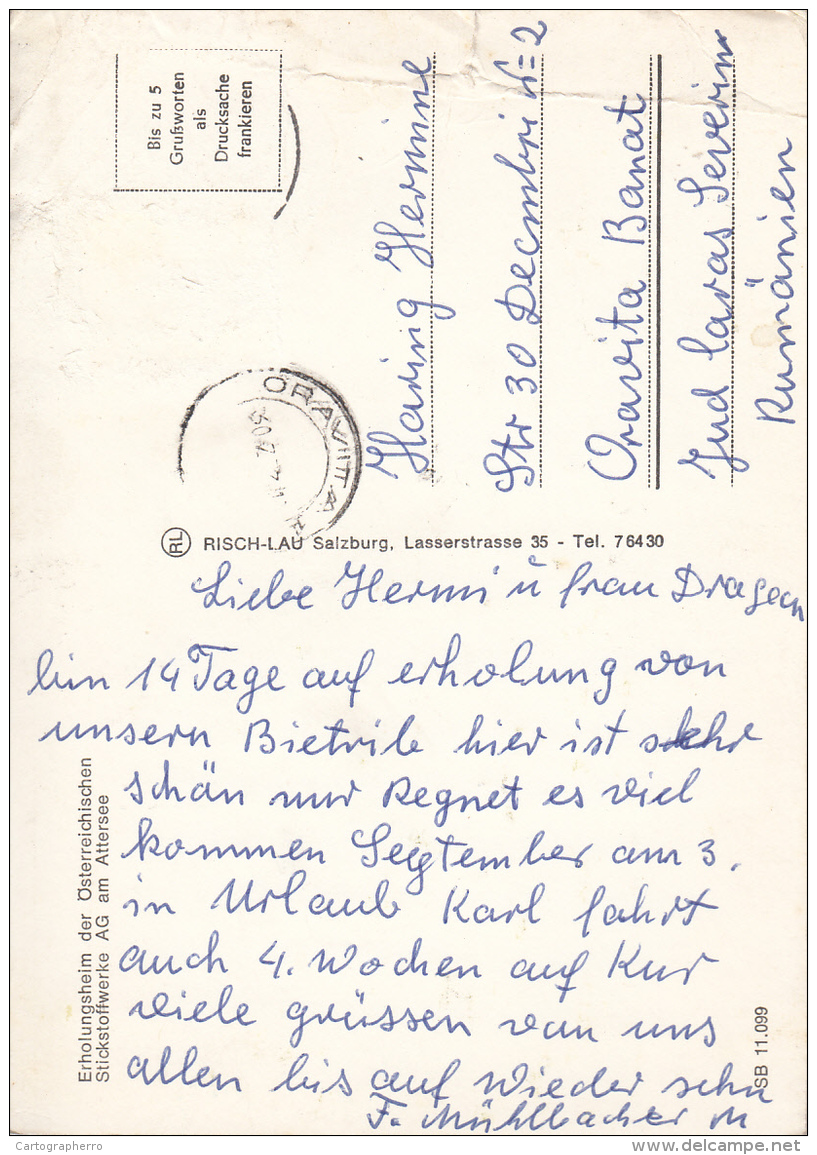 Bis zu 5
Grußworten
als
Drucksache
frankieren
Haring Hermine
Str 30 Decmbri N=2
Oravita Banat
Jud Caras Severin
Rumänien
ORAVITA
RL RISCH-LAU Salzburg, Lasserstrasse 35 - Tel. 76430
Liebe Hermi ü frau Dragean
bin 14 Tage auf erholung von
unsern Bietrib hier ist sehr
schön nur Regnet es viel
kommen September am 3.
in Urlaub Karl fahrt
auch 4. Wochen auf Kur
viele grüssen von uns
allen bis auf wieder sehn
F. Mühlbacher M
Erholungsheim der Österreichischen
Stickstoffwerke AG am Attersee
SB 11.099
Cartographerro
www.delcampe.net